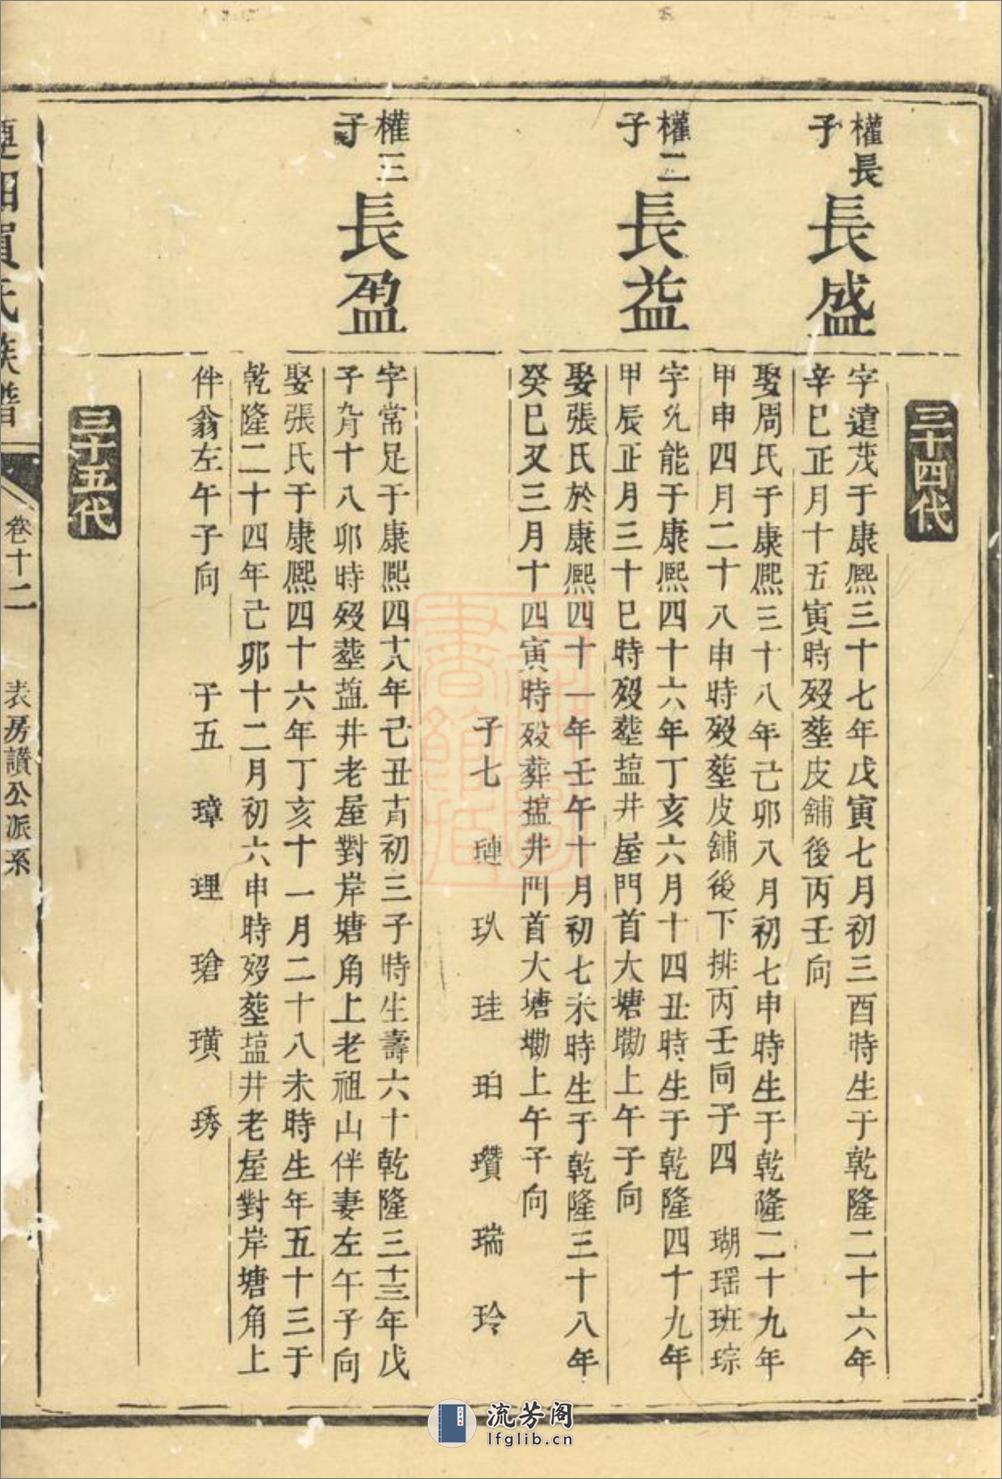 三十四代
權長
子
長盛
字遠茂于康熈三十七年戊寅七月初三酉時生于乾隆二十六年
辛巳正月十五寅時歿塟皮舖後丙壬向
娶周氏于康熈三十八年己卯八月初七申時生于乾隆二十九年
甲申四月二十八申時歿塟皮舖後下排丙壬向子四 瑚瑶班琮
權二
子
長益
字允能于康熈四十六年丁亥六月十四丑時生于乾隆四十九年
甲辰正月三十巳時歿塟塩井屋門首大塘墈上午子向
娶張氏於康熈四十一年壬午十月初七未時生于乾隆三十八年
癸巳又三月十四寅時歿葬塩井門首大塘墈上午子向
子七 璉 玖 珪 珀 瓚 瑞 玲
權三
子
長盈
字常足于康熈四十八年己丑十一月初三子時生壽六十乾隆三十三年戊
子八月十八卯時歿塟塩井老屋對岸塘角上老祖山伴妻左午子向
娶張氏于康熈四十六年丁亥十一月二十八未時生年五十三于
乾隆二十四年己卯十二月初六申時歿塟塩井老屋對岸塘角上
伴翁左午子向 子五 璋 理 瑲 璜 琇
三十五代
氏族譜
卷十二
表房讃公派系
流芳阁
lfglib.cn